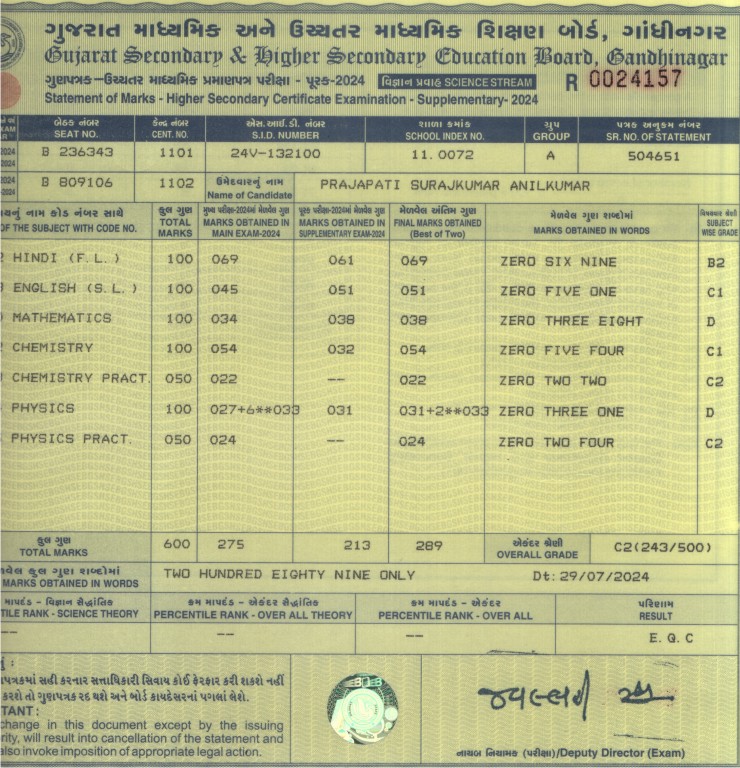 ગુજરાત માધ્યમિક અને ઉચ્ચતર માધ્યમિક શિક્ષણ બોર્ડ, ગાંધીનગર
Gujarat Secondary & Higher Secondary Education Board, Gandhinagar
ગુણપત્રક-ઉચ્ચતર માધ્યમિક પ્રમાણપત્ર પરીક્ષા - પૂરક-2024 વિજ્ઞાન પ્રવાહ SCIENCE STREAM R 0024157
Statement of Marks - Higher Secondary Certificate Examination - Supplementary- 2024
બેઠક નંબર કેન્દ્ર નંબર એસ.આઈ.ડી. નંબર શાળા ક્રમાંક ગ્રુપ પત્રક અનુક્રમ નંબર
SEAT NO. CENT. NO. S.I.D. NUMBER SCHOOL INDEX NO. GROUP SR. NO. OF STATEMENT
2024 B 236343 1101 24V-132100 11.0072 A 504651
2024
2024 B 809106 1102 ઉમેદવારનું નામ PRAJAPATI SURAJKUMAR ANILKUMAR
-2024 Name of Candidate
યનું નામ કોડ નંબર સાથે કુલ ગુણ મુખ્ય પરીક્ષા-2024માં મેળવેલ ગુણ પૂરક પરીક્ષા-2024માં મેળવેલ ગુણ મેળવેલ અંતિમ ગુણ મેળવેલ ગુણ શબ્દોમાં વિષયવાર શ્રેણી
OF THE SUBJECT WITH CODE NO. TOTAL MARKS MARKS OBTAINED IN MAIN EXAM-2024 MARKS OBTAINED IN SUPPLEMENTARY EXAM-2024 FINAL MARKS OBTAINED (Best of Two) MARKS OBTAINED IN WORDS SUBJECT WISE GRADE
HINDI (F.L.) 100 069 061 069 ZERO SIX NINE B2
ENGLISH (S.L.) 100 045 051 051 ZERO FIVE ONE C1
MATHEMATICS 100 034 038 038 ZERO THREE EIGHT D
CHEMISTRY 100 054 032 054 ZERO FIVE FOUR C1
CHEMISTRY PRACT. 050 022 -- 022 ZERO TWO TWO C2
PHYSICS 100 027+6**033 031 031+2**033 ZERO THREE ONE D
PHYSICS PRACT. 050 024 -- 024 ZERO TWO FOUR C2
કુલ ગુણ 600 275 213 289 એકંદર શ્રેણી C2(243/500)
TOTAL MARKS OVERALL GRADE
વેલ કુલ ગુણ શબ્દોમાં TWO HUNDRED EIGHTY NINE ONLY Dt: 29/07/2024
MARKS OBTAINED IN WORDS
માપદંડ - વિજ્ઞાન સૈદ્ધાંતિક ક્રમ માપદંડ - એકંદર સૈદ્ધાંતિક ક્રમ માપદંડ - એકંદર પરિણામ
TILE RANK - SCIENCE THEORY PERCENTILE RANK - OVER ALL THEORY PERCENTILE RANK - OVER ALL RESULT
-- -- -- E.Q.C
નું :
પત્રકમાં સહી કરનાર સત્તાધિકારી સિવાય કોઈ ફેરફાર કરી શકશે નહીં
કરશે તો ગુણપત્રક રદ થશે અને બોર્ડ કાયદેસરનાં પગલાં લેશે.
TANT :
change in this document except by the issuing
rity, will result into cancellation of the statement and
also invoke imposition of appropriate legal action.
નાયબ નિયામક (પરીક્ષા)/Deputy Director (Exam)